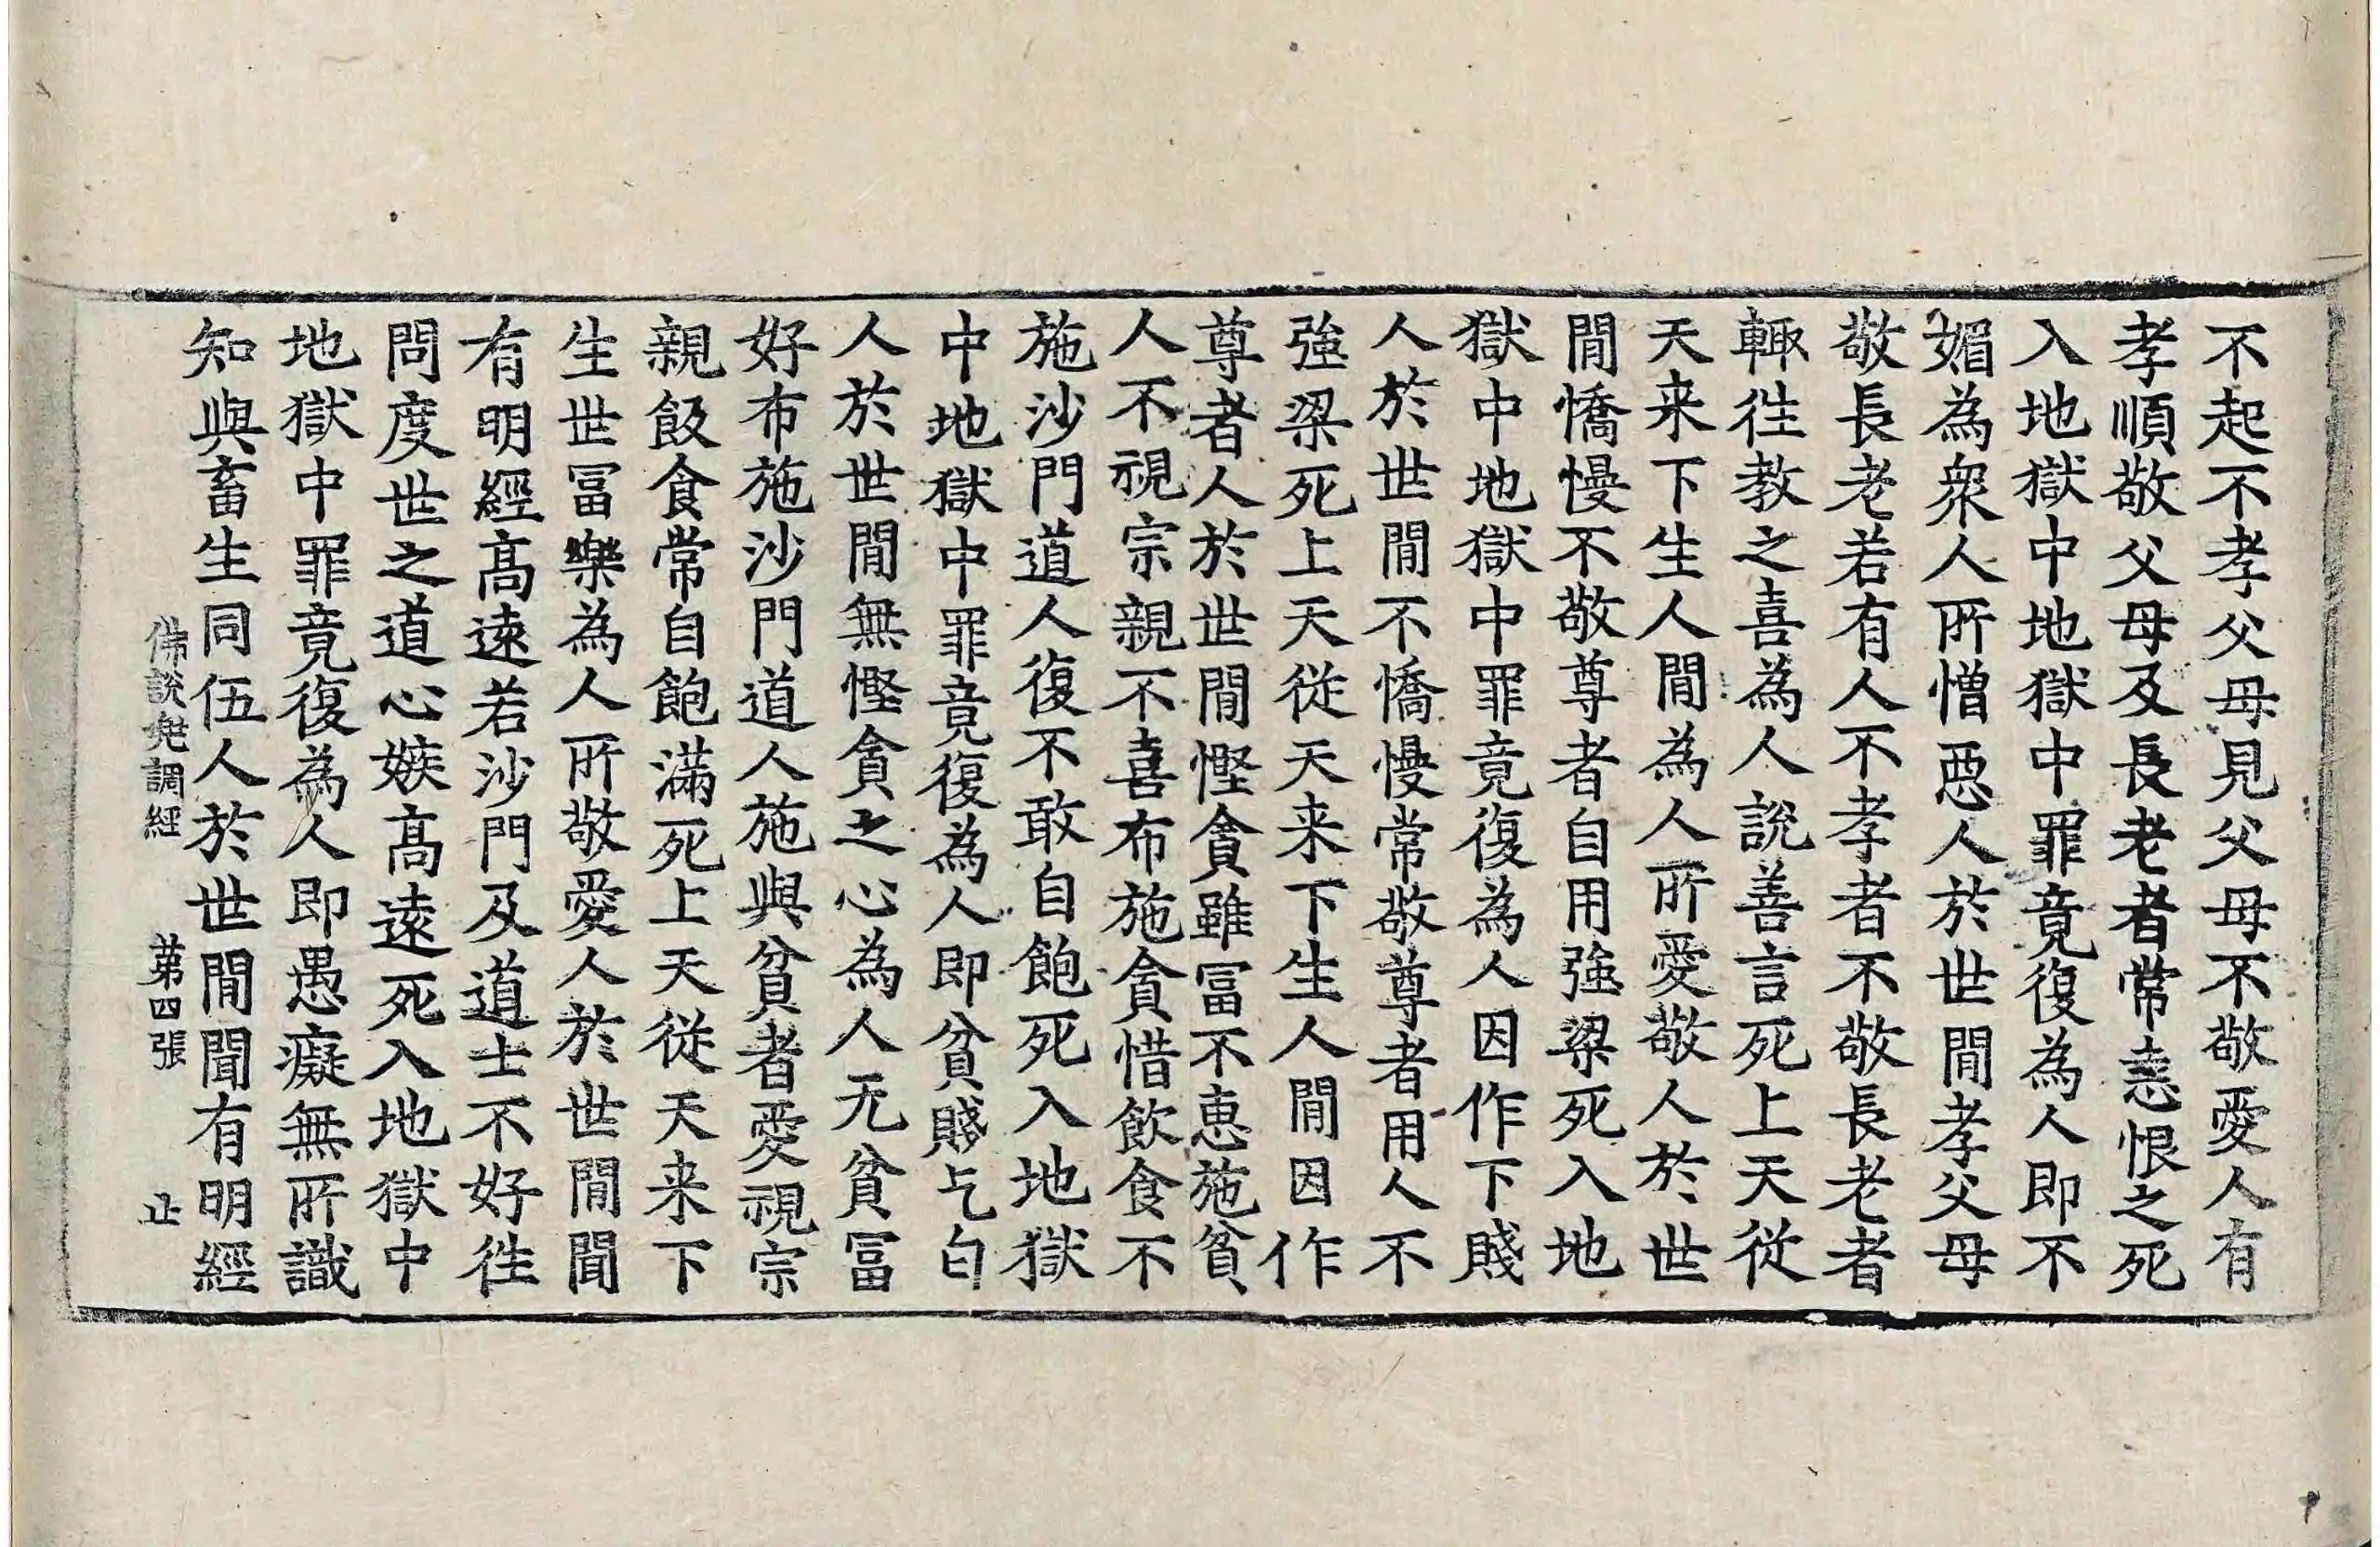 不起不孝父母見父母不敬愛人有
孝順敬父母及長老者常恚恨之死
入地獄中地獄中罪竟復為人即不
媚為衆人所憎惡人於世間孝父母
敬長老若有人不孝者不敬長老者
輙徃教之喜為人說善言死上天從
天来下生人間為人所愛敬人於世
間憍慢不敬尊者自用強梁死入地
獄中地獄中罪竟復為人因作下賤
人於世間不憍慢常敬尊者用人不
強梁死上天從天来下生人間因作
尊者人於世間慳貪雖冨不恵施貧
人不視宗親不喜布施貪惜飲食不
施沙門道人復不敢自飽死入地獄
中地獄中罪竟復為人即貧賤乞匃
人於世間無慳貪之心為人无貧冨
好布施沙門道人施與貧者愛視宗
親飯食常自飽滿死上天從天来下
生世冨樂為人所敬愛人於世間聞
有明經髙遠若沙門及道士不好徃
問度世之道心嫉髙遠死入地獄中
地獄中罪竟復為人即愚癡無所識
知與畜生同伍人於世間聞有明經
佛說兠調經 苐四張